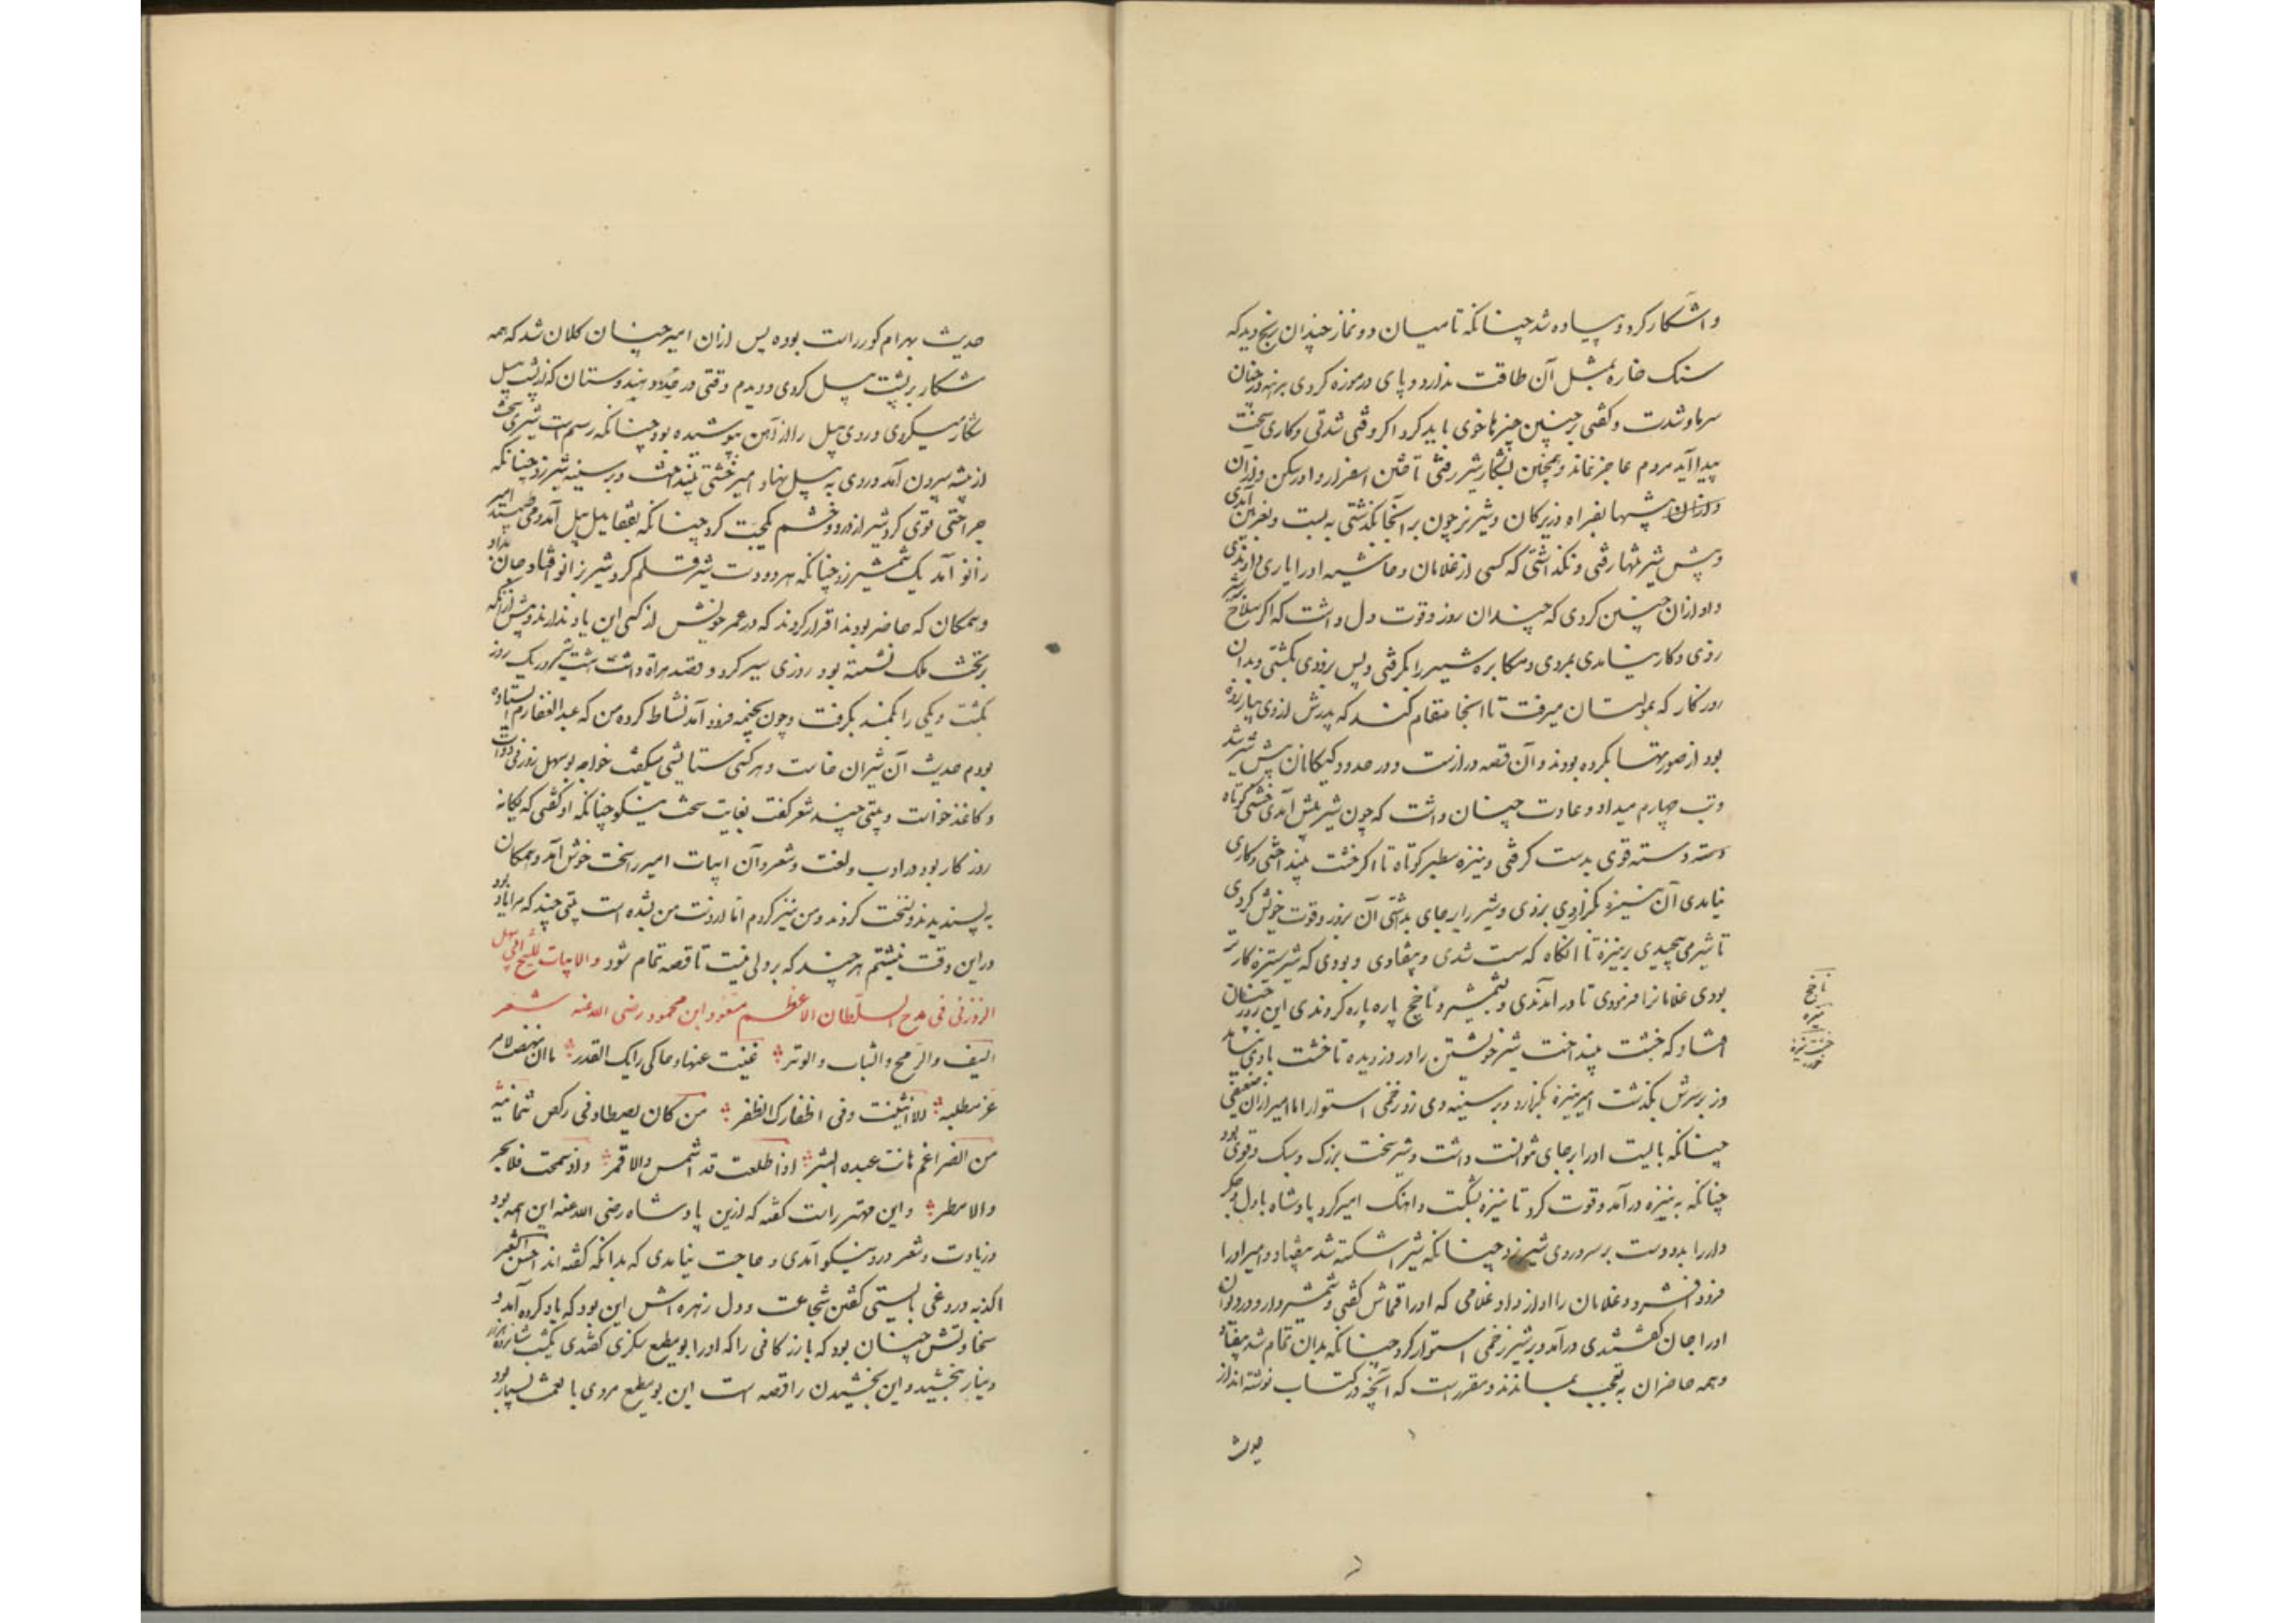 و اشکار کرد و پیاده شد چنانکه تا میان دو نماز چندان رنج دید که
سنک خاره بمثل آن طاقت ندارد و پای در موزه کردی برهنه در چنان
سرما و شدت و کفتی بر چنین چیزها خوی باید کرد اکر وقتی شدتی و کاری سخت
پیدا آید مردم عاجز نماند و همچنین بشکار شیر رفتی تا ختن اسفزار و ادرسکن وزان
وزان بیشها بفراه و زیرکان و شیر نر چون بر آنجا بکذشتی به بست و بغزنین آمدی
و پیش شیر تنها رفتی و نکذاشتی که کسی از غلامان و حاشیه او را یاری دادندی
و او از آن چنین کردی که چندان زور و قوت دل داشت که اکر سلاح بر شیر
زدی و کار نیامدی بمردی و مکابره شیر را بکرفتی و پس بزودی بکشتی و بدان
روزکار که بمولتان میرفت تا آنجا مقام کند که پدرش از وی بیازرده
بود از صورتها بکرده بودند و آن قصه درازست و در حدود کیکانان پیش شیر شد
و تب چهارم میداد و عادت چنان داشت که چون شیر پیش آمدی خشتی کوتاه
دسته دسته قوی بدست کرفتی و نیزه سطبر کوتاه تا اکر خشت بینداختی و کاری
نیامدی آن نیزه بکزاردی بزودی و شیر را بر جای بداشتی آن بزور و قوت خویش کردی
تا شیر می پیچیدی بر نیزه تا آنکاه که سست شدی و بیفتادی و بودی که شیر ستیزه کارتر
بودی غلامانرا فرمودی تا در آمدندی و بشمشیر و ناخج پاره پاره کردندی این روز چنان
افتاد که خشت بینداخت شیر خویشتن را در دزدیده تا خشت با وی نیامد
وز بر سرش بکذشت امیر نیزه بکزارد و بر سینه وی زد زخمی استوار اما امیر از آن ضعیفی
چنانکه بایست او را بر جای نتوانست داشت و شیر سخت بزرک و سبک و قوی بود
چنانکه به نیزه درآمد و قوت کرد تا نیزه بشکست و اهنک امیر کرد پادشاه با دل و جکر
دار را بدو دست بر سر و روی شیر زد چنانکه شیر شکسته شد بیفتاد و امیر او را
فرود افشرد و غلامان را آواز داد غلامی که او را قماش کفتی و شمشیردار و در دیوان
او را جان کفتندی درآمد و بر شیر زخمی استوار کرد چنانکه بدان تمام شد بیفتاد
و همه حاضران به تعجب بماندند و مقررست که آنچه در کتاب نوشته اند از
حدیث
ناخج
تبرزه
خشت نیزه
حدیث بهرام کور راست بوده پس از آن امیر چنان کلان شد که همه
شکار بر پشت پیل کردی و دیدم وقتی در حدود هندوستان که از پشت پیل
شکار میکردی و روی پیل را از آهن بپوشیده بود چنانکه رسم است شیری سخت
از بیشه بیرون آمد و روی به پیل نهاد امیر خشتی بینداخت و بر سینه شیر زد چنانکه
جراحتی قوی کرد شیر از درد و خشم یک جست کرد چنانکه بقفای پیل آمد و پیل می طپید امیر
زانو آمد یک شمشیر زد چنانکه هر دو دست شیر قلم کرد شیر بزانو افتاد و جان بداد
و همکان که حاضر بودند اقرار کردند که در عمر خویش از کسی این یاد ندارند و پیش از آنکه
بر تخت ملک نشسته بود روزی سیر کرد و قصد هراة داشت هشت شیر در یک روز
بکشت و یکی را بکمند بکرفت و چون بخیمه فرود آمد نشاط کرد و من که عبدالغفارم ایستاده
بودم حدیث آن شیران خاست و هر کس ستایشی میکفت خواجه بوسهل زوزنی دوات
و کاغذ خواست و بیتی چند شعر کفت بغایت سخت نیکو چنانکه او کفتی که یکانه
روزکار بود در ادب و لغت و شعر و آن ابیات امیر را سخت خوش آمد و همکان
به پسندیدند و نسخت کردند و من نیز کردم اما از دست من بشده است بیتی چند که مرا یاد بود
در این وقت نبشتم هر چند که بر ولی نیست تا قصه تمام شود والابیات للشیخ ابی سهل
الزوزنی فی مدح السلطان الاعظم مسعود ابن محمود رضی الله عنه شعر
السیف والرمح والنشاب والوتر غنیت عنها و حاکی رایک القدر ما ان نهضت لامر
عز مطلبه الا انثنیت وفی اظفارک الظفر من کان یصطاد فی رکض ثمانیة
من الضراغم هانت عنده البشر اذا طلعت فلا شمس ولا قمر واذ سمحت فلا بحر
ولا مطر و این مهتر راست کفته که ازین پادشاه رضی الله عنه این همه بود
و زیادت و شعر در و نیکو آمدی و حاجت نیامدی که بدانکه کفته اند احسن الشعر
اکذبه دروغی بایستی کفتن شجاعت و دل و زهره اش این بود که یاد کرده آمد و
سخاوتش چنان بود که بازرکانی را که او را بومطیع سکزی کفتندی یکشب شانزده هزار
دینار بخشید و این بخشیدن را قصه است این بومطیع مردی با نعمت بسیار بود